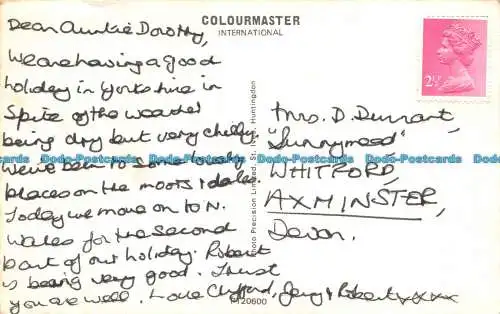 COLOURMASTER
INTERNATIONAL
Dear Auntie Dorothy,
We are having a good
holiday in Yorkshire in
Spite of the weather
being dry but very chilly.
We've been to some lovely
places on the moors & dales.
Today we move on to N.
Wales for the second
part of our holiday. Robert
is being very good. Trust
you are well. Love Clifford, Jenny & Robert xxxx
2½P
Mrs. D. Durrant,
"Sunnymead"
WHITFORD,
AXMINSTER,
Devon.
Photo Precision Limited, St. Ives, Huntingdon
PT20600
Dodo-Postcards Dodo-Postcards Dodo-Postcards Dodo-Postcards Dodo-Postcards